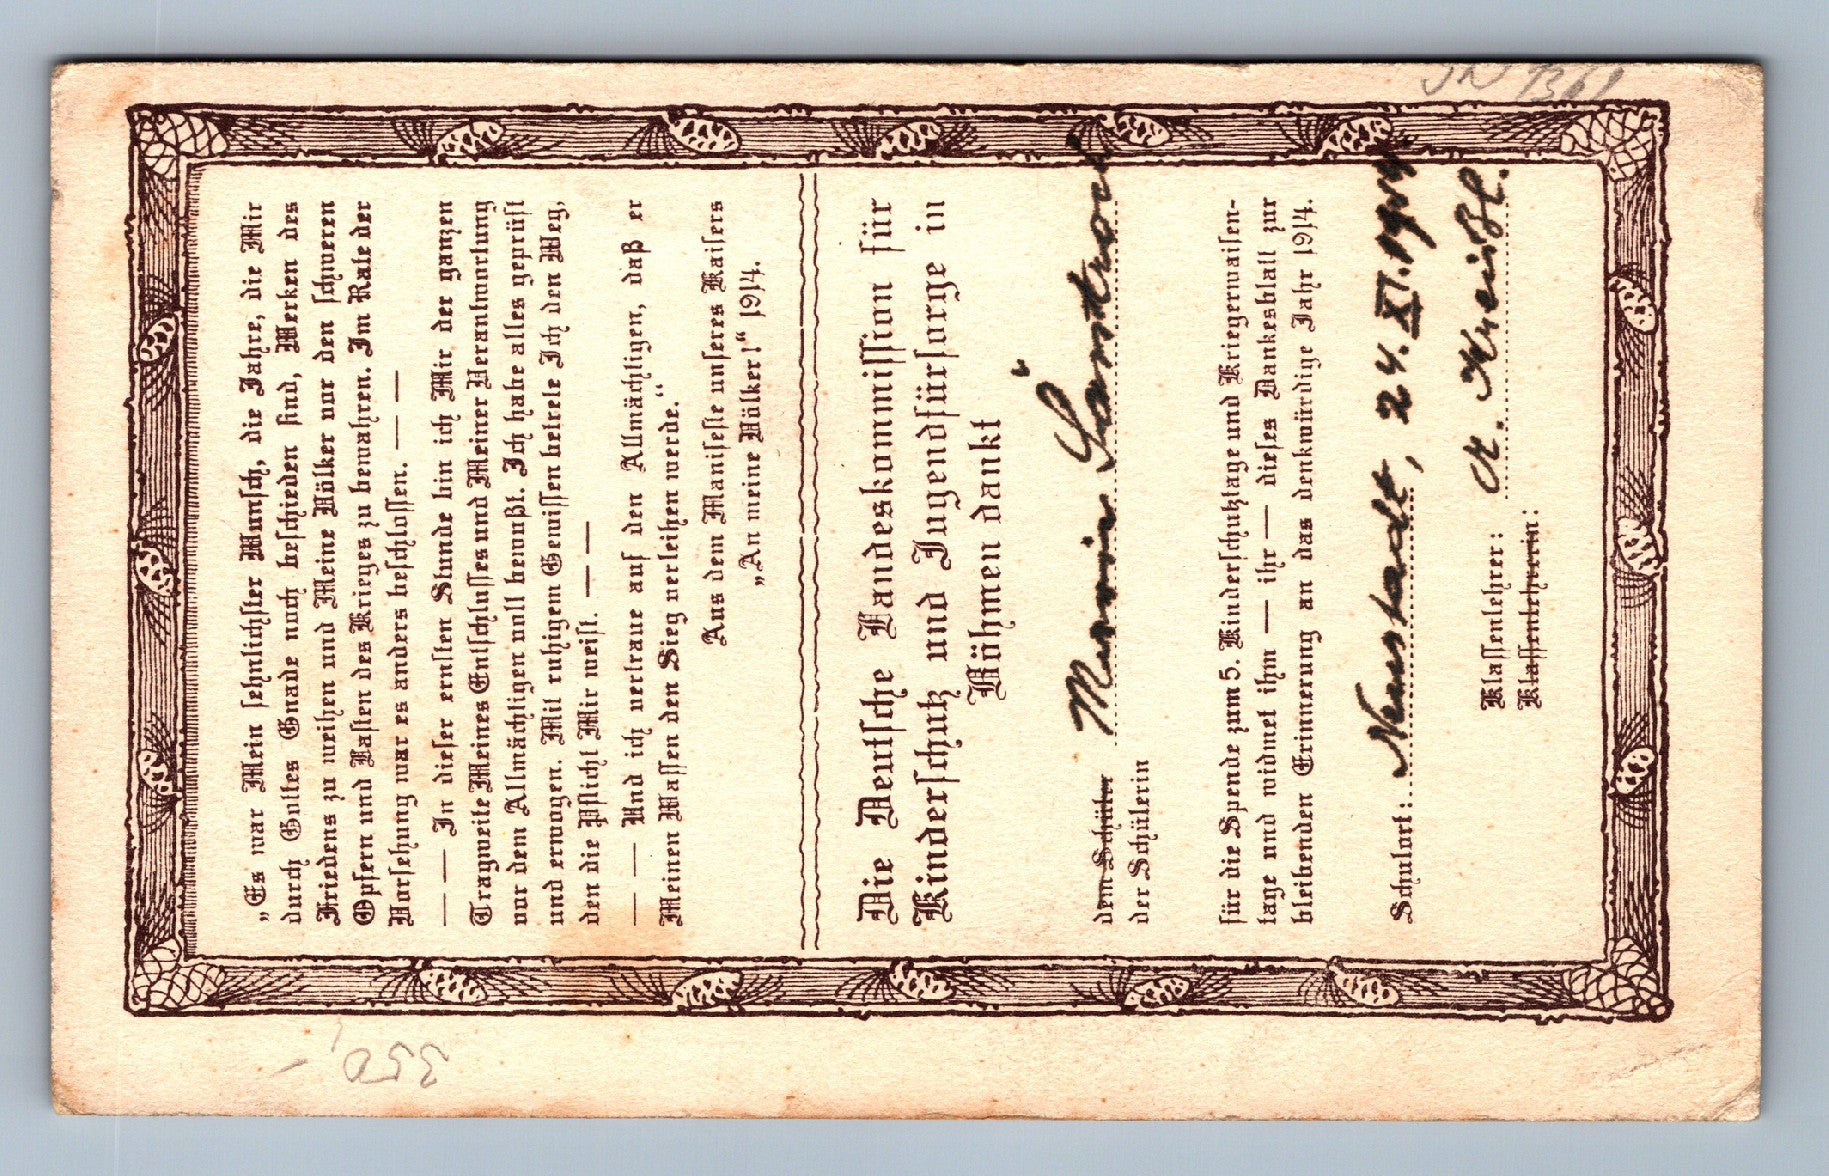 „Es war Mein sehnlichster Wunsch, die Jahre, die Mir
durch Gottes Gnade noch beschieden sind, Werken des
Friedens zu weihen und Meine Völker vor den schweren
Opfern und Lasten des Krieges zu bewahren. Im Rate der
Vorsehung war es anders beschlossen. — —
— — In dieser ernsten Stunde bin ich Mir der ganzen
Tragweite Meines Entschlusses und Meiner Verantwortung
vor dem Allmächtigen voll bewußt. Ich habe alles geprüft
und erwogen. Mit ruhigem Gewissen betrete Ich den Weg,
den die Pflicht Mir weist. — —
— — Und ich vertraue auf den Allmächtigen, daß er
Meinen Waffen den Sieg verleihen werde.“
Aus dem Manifeste unseres Kaisers
„An meine Völker!“ 1914.
Die Deutsche Landeskommission für
Kinderschutz und Jugendfürsorge in
Böhmen dankt
dem Schüler
der Schülerin
für die Spende zum 5. Kinderschutztage und Kriegerwaisen-
tage und widmet ihm — ihr — dieses Dankesblatt zur
bleibenden Erinnerung an das denkwürdige Jahr 1914.
Schulort: Neustadt, 24. XI. 1914.
Klassenlehrer:
Klassenlehrerin:
350